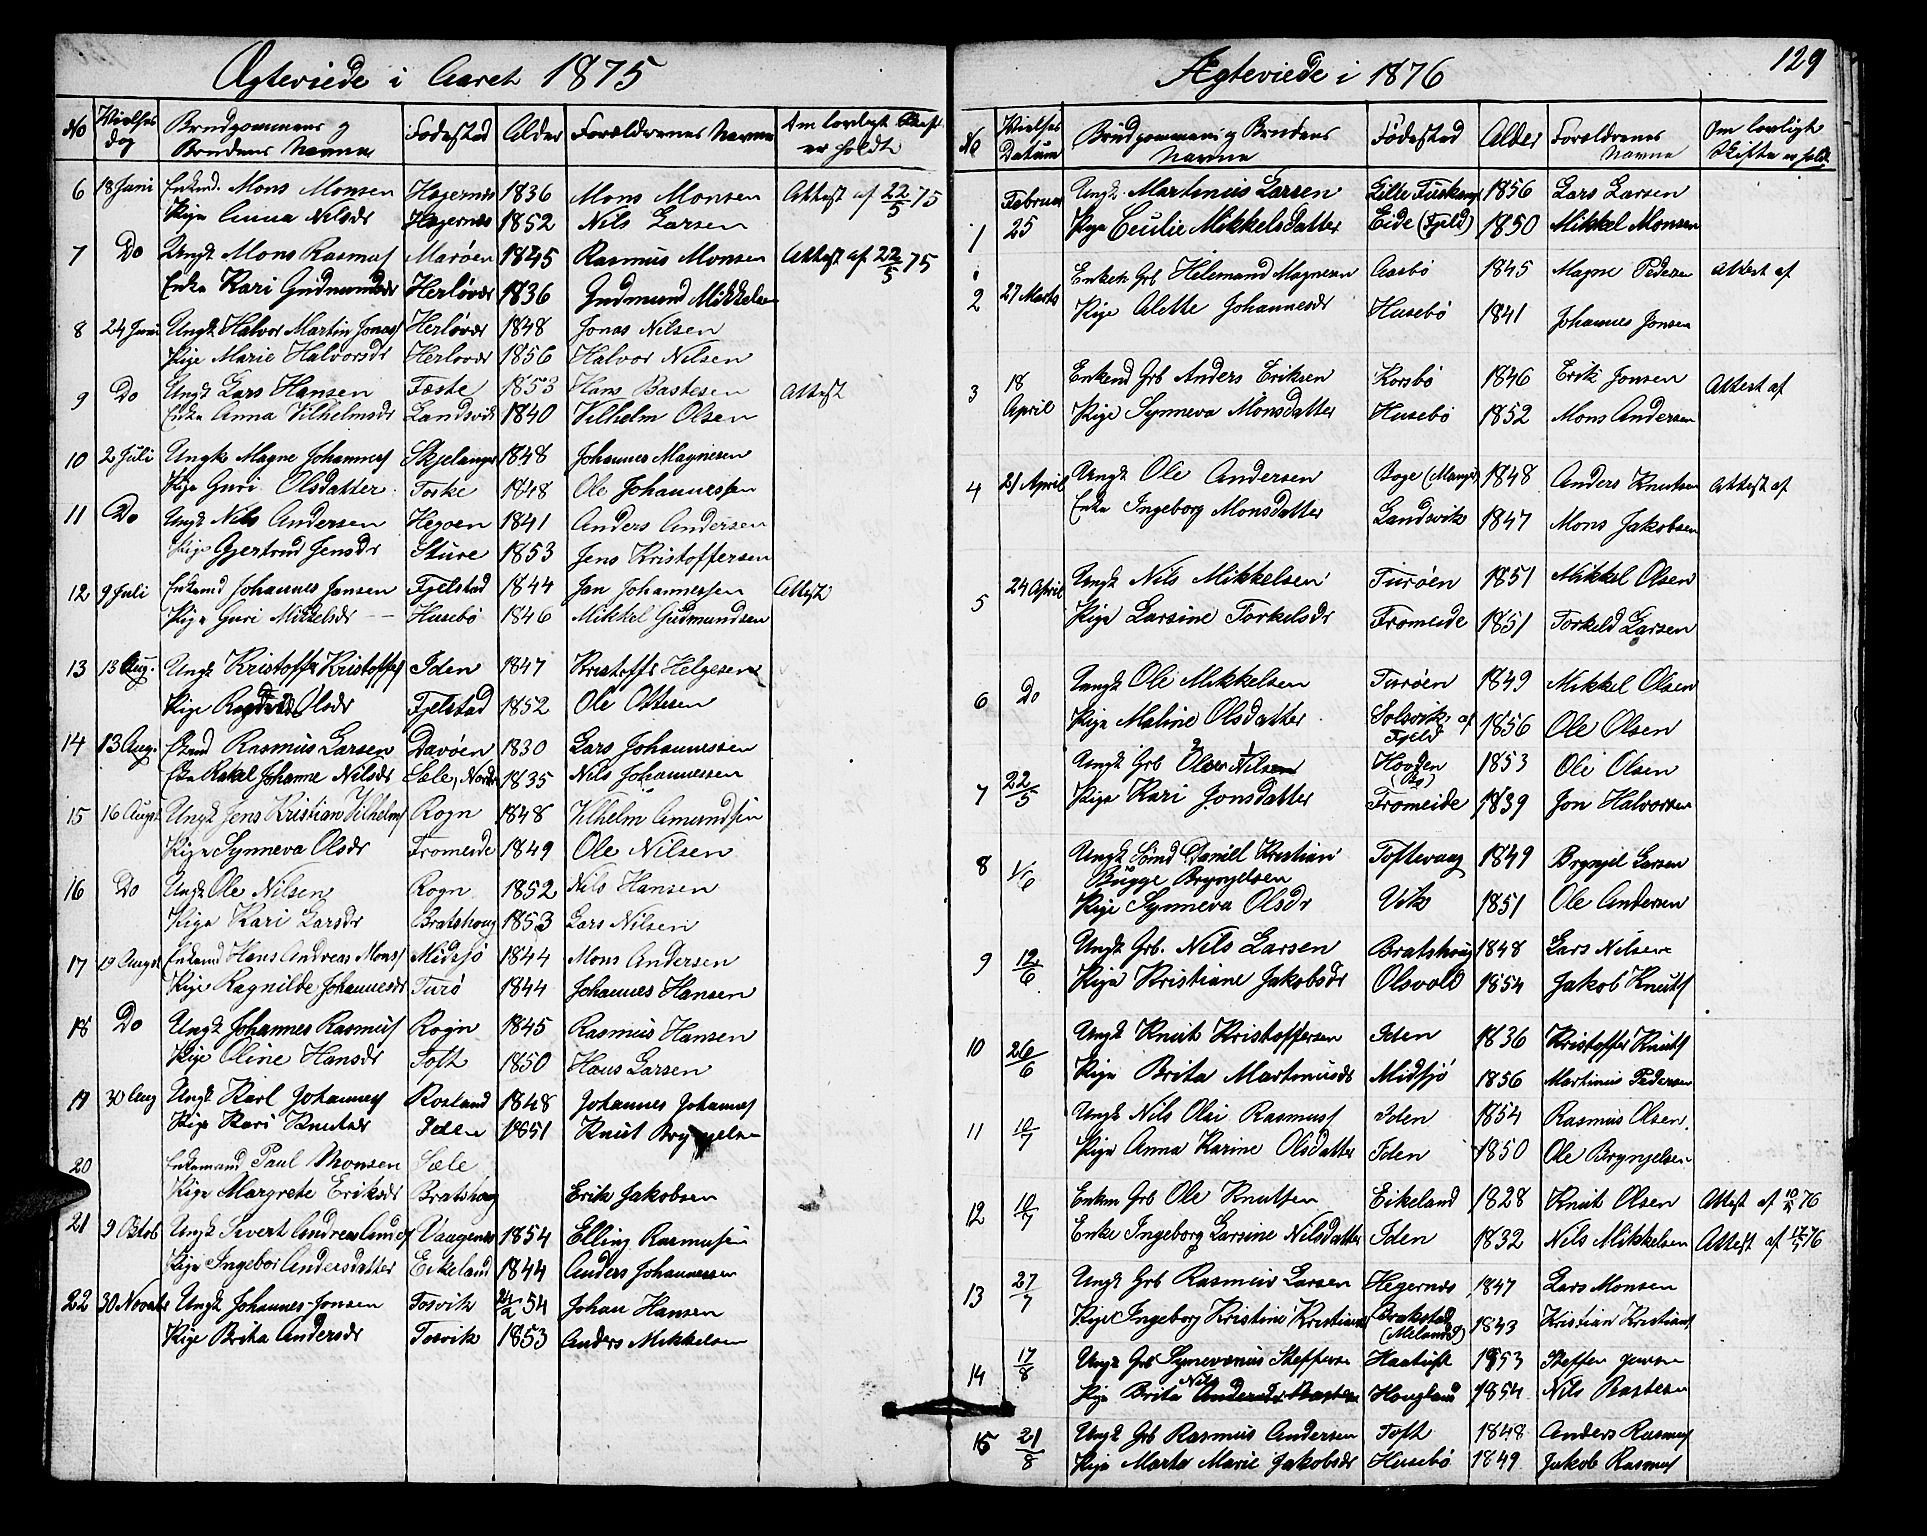 Ægteviede i Aaret 1875
No Vielses dag Brudgommens og Brudens Navne Fødested Alder Forældrenes Navne Om lovligt Skifte er holdt
6 18 Juni Enkemd. Mons Monsen Hagernes 1836 Mons Monsen Attest af 22/5 75
Pige Anna Nilsdr Hagernes 1852 Nils Larsen
7 Do Ungk Mons Rasmus Marøen 1845 Rasmus Monsen Attest af 22/5 75
Enke Kari Gudmundsdr Herløvær 1836 Gudmund Mikkelsen
8 24 Juni Ungk Halvor Martin Jonas Herløvær 1848 Jonas Nilsen
Pige Marie Halvorsdr Herløvær 1856 Halvor Nilsen
9 Do Ungk Lars Hansen Feste 1853 Hans Bastesen Attest
Enke Anna Vilhelmsdr Landsvik 1840 Vilhelm Olsen
10 2 Juli Ungk Magne Johannes Skjelanger 1848 Johannes Magnesen
Pige Guri Olsdatter Toske 1848 Ole Johannessen
11 Do Ungk Nils Andersen Hegøen 1841 Anders Andersen
Pige Gjertrud Jensdr Sture 1853 Jens Kristoffersen
12 9 Juli Enkemd Johannes Jansen Fjelstad 1844 Jan Johannessen Attest
Pige Guri Mikkelsdr Husebø 1846 Mikkel Gudmundsen
13 13 Aug. Ungk Kristoffr Kristoffes Iden 1847 Kristoffr Helgesen
Pige Olsdr Fjelstad 1852 Ole Ottesen
14 13 Aug. Rasmus Larsen Davøen 1830 Lars Johannessen
Rakel Johanne Nilsdr Sæle, 1835 Nils Johannessen
15 16 August Ungk Jens Kristian Vilhelms Rogn 1848 Vilhelm Amundsen
Pige Synneva Olsdr Fromeide 1849 Ole Nilsen
16 Do Ungk Ole Nilsen Rogn 1852 Nils Hansen
Pige Kari Larsdr Bratshoug 1853 Lars Nilsen
17 19 August Enkemd Hans Andreas Mons Midsjø 1844 Mons Andersen
Pige Ragnilde Johannesdr Turø 1844 Johannes Hansen
18 Do Ungk Johannes Rasmus Rogn 1845 Rasmus Hansen
Pige Oline Hansdr Toft 1850 Hans Larsen
19 30 Aug Ungk Karl Johannes Rosland 1848 Johannes Johannes
Pige Kari Knutsdr Iden 1851 Knut Brynjelsen
20 Enkemand Paul Monsen Sæle
Pige Margrete Eriksdr Bratshoug Erik Jakobsen
21 9 Oktob Ungk Sivert Andreas Vaagenes 1854 Elling Rasmusen
Pige Ingebor Andersdatter Eikeland 1844 Anders Johannessen
22 30 Novbr Ungk Johannes Jonsen Tosvik 24/2 54 Johan Hansen
Pige Brita Andersdr Tosvik 1853 Anders Mikkelsen
129
Ægteviede i 1876
No Vielses Datum Brudgommens og Brudens Navne Fødested Alder Forældrenes Navne Om lovligt Skifte er hold
1 Februar 25 Ungk. Martinius Larsen Lille Turhaug 1856 Lars Larsen
Pige Cecilie Mikkelsdatter Eide (Fjeld) 1850 Mikkel Monsen
2 27 Marts Enkem Grb Helemand Magnesen Aasbø 1845 Magne Pedersen Attest af
Pige Alette Johannesdr Husebø 1841 Johannes Jonsen
3 18 April Enkemd Grb Anders Eriksen Korsbø 1846 Erik Jonsen Attest af
Pige Synneva Monsdatter Husebø 1852 Mons Andersen
4 21 April Ungk Ole Andersen Boge (Manger) 1848 Anders Knutsen Attest af
Enke Ingeborg Monsdatter Landsvik 1847 Mons Jakobsen
5 24 April Ungk Nils Mikkelsen Turøen 1851 Mikkel Olsen
Pige Larsine Torkelsdr Fromeide 1851 Torkeld Larsen
6 Do Ungk Ole Mikkelsen Turøen 1849 Mikkel Olsen
Pige Maline Olsdatter Solsvik, af Fjeld 1856 Ole Olsen
7 22/5 Ungk Grb Nilsen Hovden (Bø) 1853 Ole Olsen
Pige Kari Jonsdatter Fromeide 1839 Jon Halvorsen
8 1/6 Ungk Sømd Daniel Kristian Toftevaag 1849 Brynjel Larsen
Bugge Brynjelsen
Pige Synneva Olsdr Vik 1851 Ole Andersen
9 12/6 Ungk Grb. Nils Larsen Bratshoug 1848 Lars Nilsen
Pige Kristiane Jakobsdr Olsvold 1854 Jakob Knuts
10 26/6 Ungk Knut Kristoffersen Iden 1836 Kristoffer Knuts
Pige Brita Martinusdr Midsjø 1856 Martinus Pedersen
11 10/7 Ungk Nils Olai Rasmus Iden 1854 Rasmus Olsen.
Pige Anna Karine Olsdatter Iden 1850 Ole Brynjelsen
12 10/7 Enkm Grb Ole Knutsen Eikeland 1828 Knut Olsen Attest af 76
Enke Ingeborg Larsine Nilsdatter Iden 1832 Nils Mikkelsen Attest af 76
13 27/7 Ungk Grb Rasmus Larsen Hegernes 1847 Lars Monsen
Pige Ingeborg Kristine Kristians Brakstad (Meland) 1843 Kristian Kristians
14 17/8 Ungk Grb Synnevarius Steffens Haatuft 1853 Steffen Jensen
Pige Brita Nils Hougland 1854 Nils Bastesen
15 21/8 Ungk Grb Rasmus Andersen Toft 1848 Anders Rasmus
Pige Marta Marie Jakobsdr Husebø 1849 Jakob Rasmus